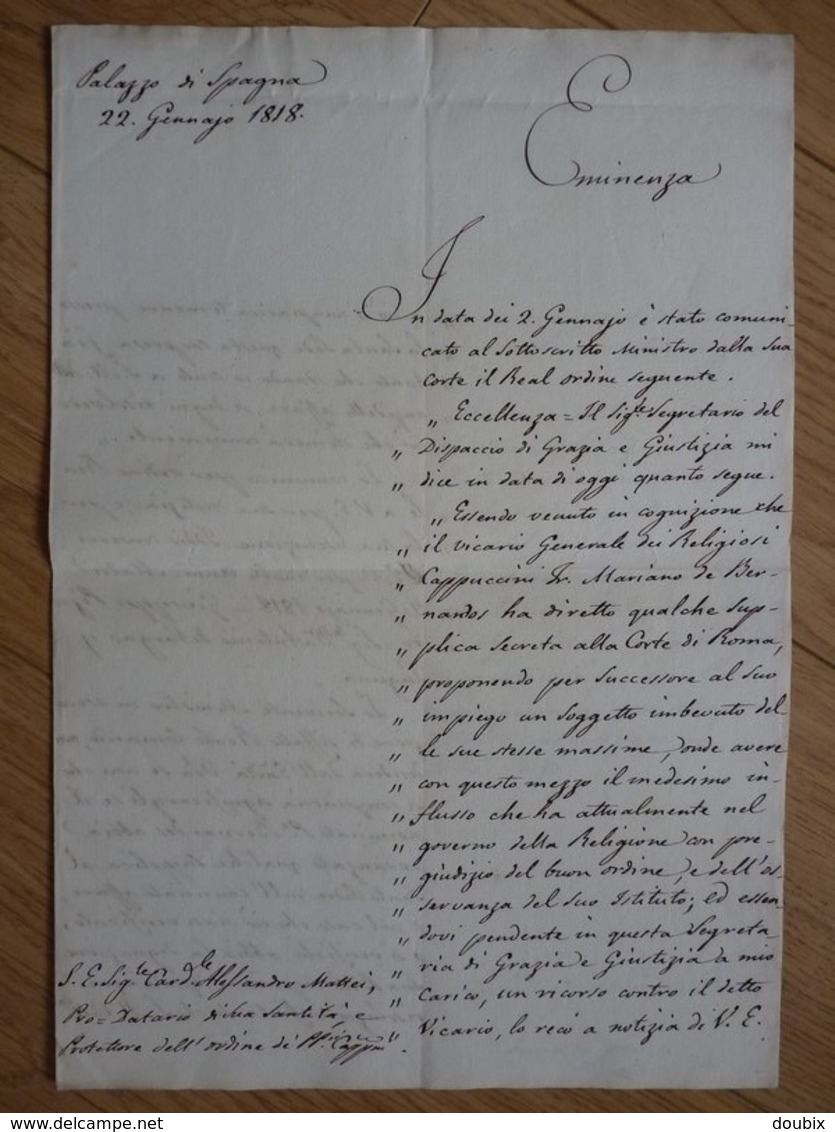 Palazzo di Spagna
22. Gennajo 1818.
Eminenza
In data dei 2. Gennajo è stato comuni-
cato al Sottoscritto Ministro dalla Sua
Corte il Real ordine seguente.
„ Eccellenza = Il Sig.re Segretario del
„ Dispaccio di Grazia e Giustizia mi
„ dice in data di oggi quanto segue.
„ Essendo venuto in cognizione che
„ il Vicario Generale dei Religiosi
„ Cappuccini Fr. Mariano de Ber-
„ nardos ha diretto qualche sup-
„ plica secreta alla Corte di Roma,
„ proponendo per successore al suo
„ impiego un soggetto imbevuto del-
„ le sue stesse massime, onde avere
„ con questo mezzo il medesimo in-
„ flusso che ha attualmente nel
„ governo della Religione con pre-
„ giudizio del buon ordine, e dell'os-
„ servanza del suo Istituto; ed essen-
„ dovi pendente in questa Segreta
„ ria di Grazia e Giustizia a mio
„ Carico, un ricorso contro il detto
„ Vicario, lo reco a notizia di V. E.
S. E. Sig.re Card.le Alessandro Mattei,
Pro-Datario di Sua Santità, e
Protettore dell'ordine de'
delcampe.net
doubix